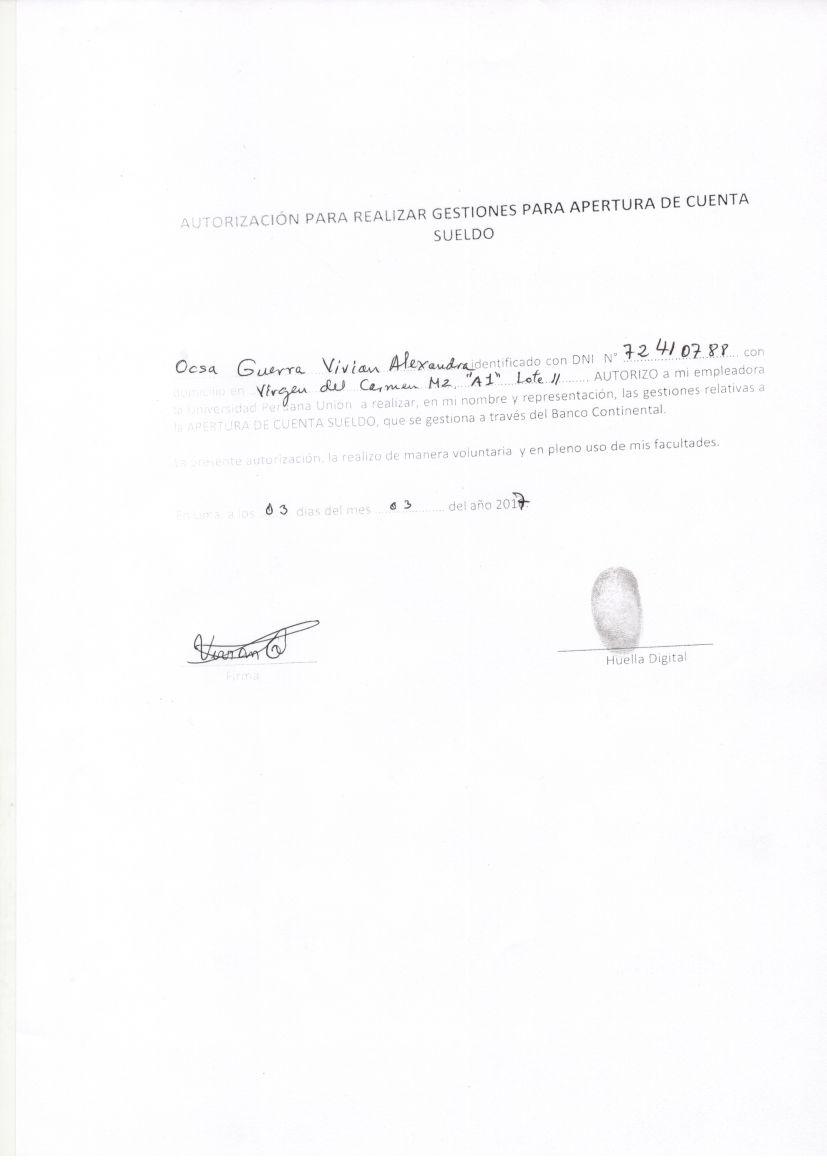 AUTORIZACIÓN PARA REALIZAR GESTIONES PARA APERTURA DE CUENTA
SUELDO
Ocsa Guerra Vivian Alexandra identificado con DNI N° 72410788 con
domicilio en Virgen del Carmen Mz. "A1" Lote 11 AUTORIZO a mi empleadora
la Universidad Peruana Unión a realizar, en mi nombre y representación, las gestiones relativas a
la APERTURA DE CUENTA SUELDO, que se gestiona a través del Banco Continental.
La presente autorización, la realizo de manera voluntaria y en pleno uso de mis facultades.
En Lima, a los 03 días del mes 03 del año 2017
Vivian
Firma
Huella Digital